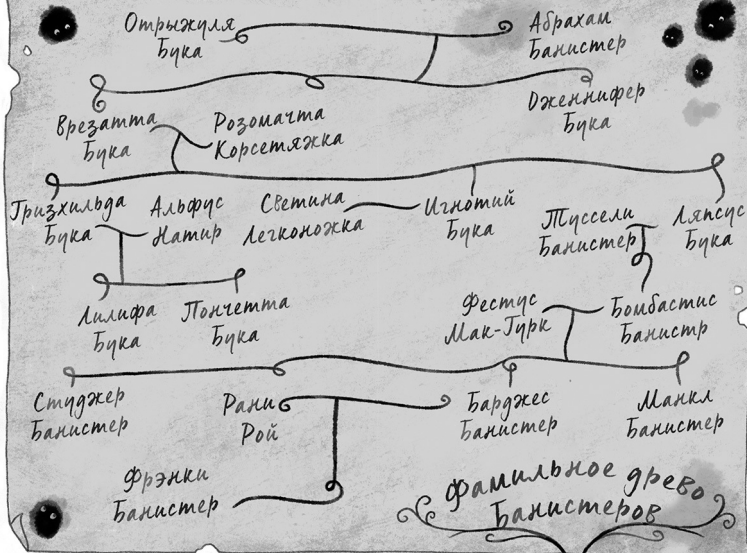 Отрыжуля
Бука
Абрахам
Банистер
Врезатта
Бука
Розомахта
Корсетяжка
Дженнифер
Бука
Гризхильда
Бука
Альфус
Натир
Светина
Легконожка
Игнотий
Бука
Туссели
Банистер
Ляпсус
Бука
Лилифа
Бука
Пончетта
Бука
Фестус
Мак-Гурк
Бомбастис
Банистр
Студжер
Банистер
Рани
Рой
Барджес
Банистер
Манкл
Банистер
Фрэнки
Банистер
Фамильное древо
Банистеров